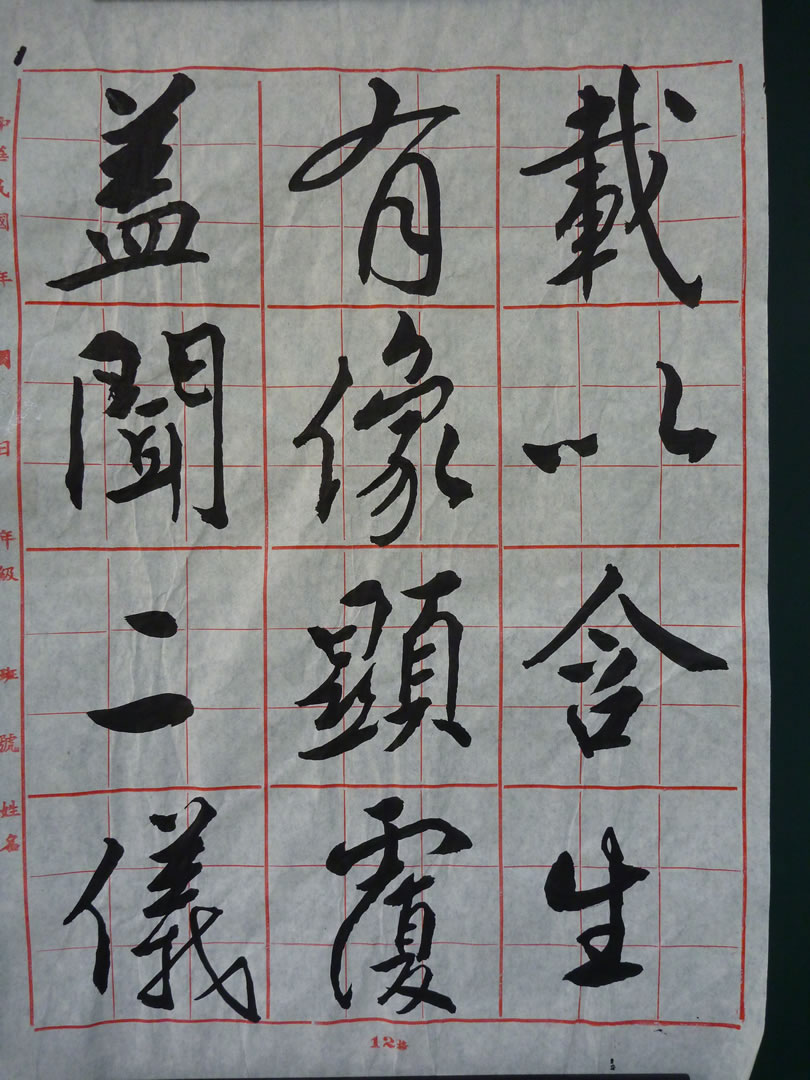 盖聞二儀
有像顯覆
載以含生
中華民國 年 月 日 年級 班 號 姓名
12格